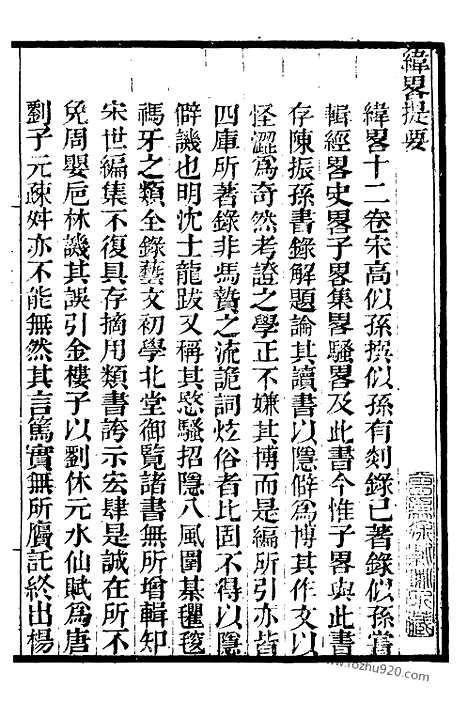 緯畧提要
緯畧十二卷宋高似孫撰似孫有剡錄已著錄似孫嘗
輯經畧史畧子畧集畧騷畧及此書今惟子畧與此書
存陳振孫書錄解題論其讀書以隱僻爲博其作文以
怪澀爲奇然考證之學正不嫌其博而是編所引亦皆
四庫所著錄非馮贄之流詭詞炫俗者比固不得以隱
僻譏也明沈士龍跋又稱其愍騷招隱八風圍棊氍毹
禡牙之類全錄藝文初學北堂御覽諸書無所增輯知
宋世編集不復具存摘用類書誇示宏肆是誠在所不
免周嬰巵林譏其誤引金樓子以劉休元水仙賦爲唐
劉子元疎舛亦不能無然其言篤實無所贗託終出楊
www.fozhu920.com